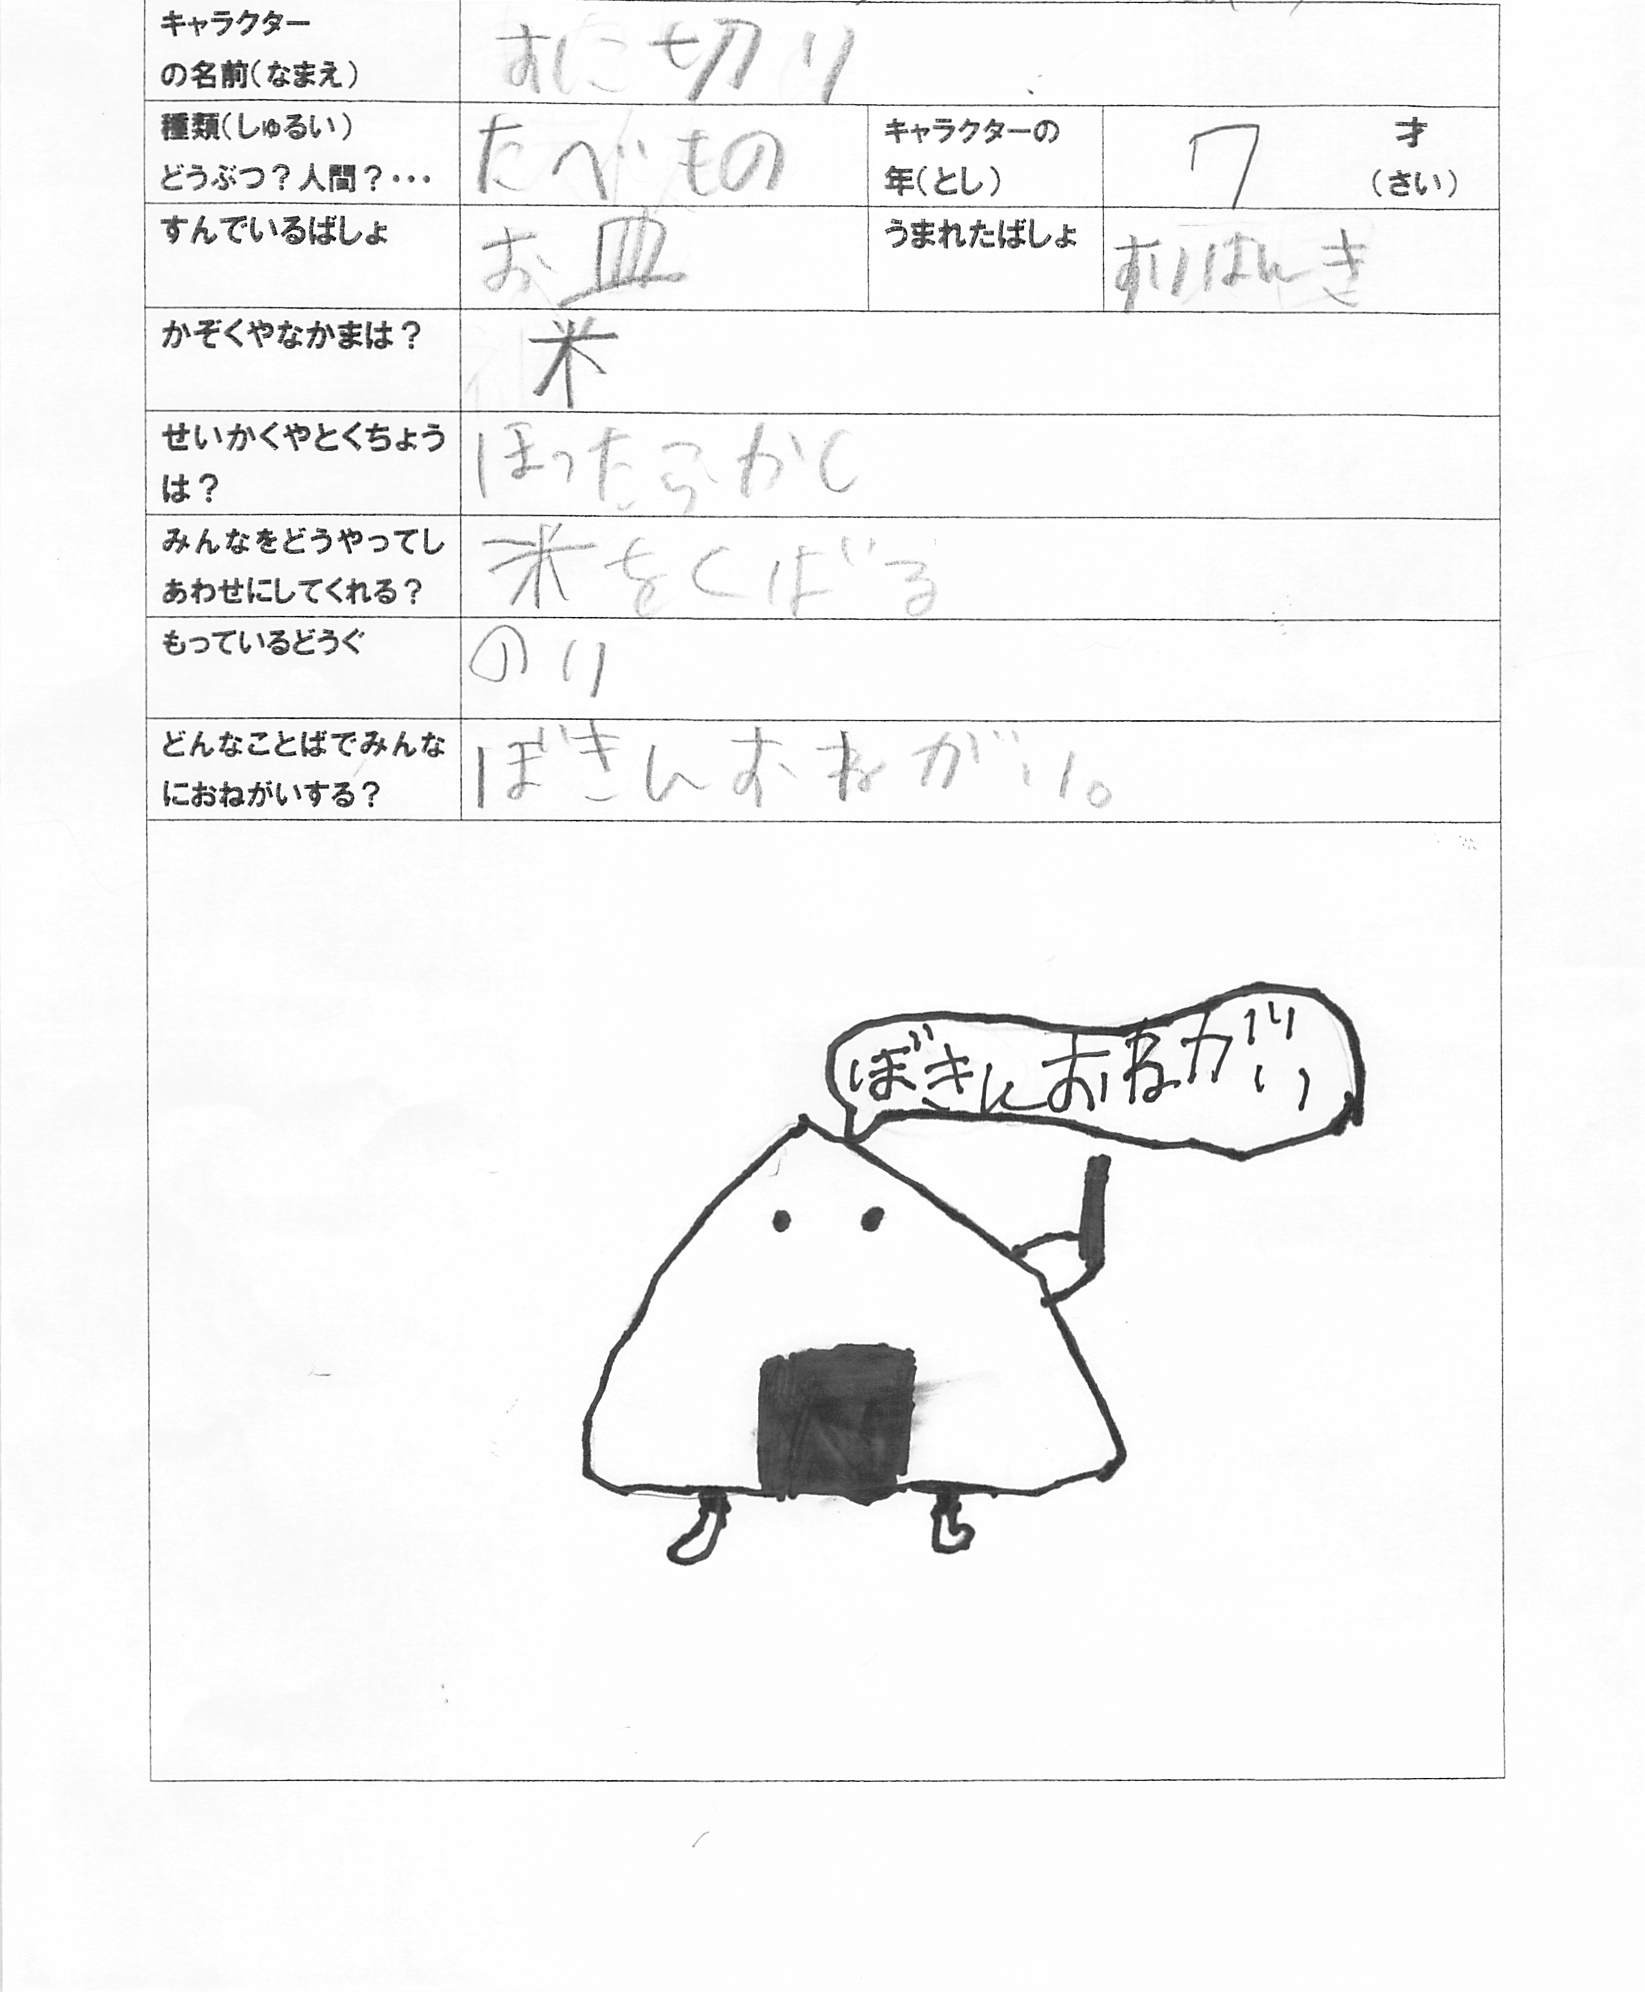 キャラクター
の名前(なまえ)
おに切り
種類(しゅるい)
どうぶつ?人間?・・・
たべもの
キャラクターの
年(とし)
7
才
(さい)
すんでいるばしょ
お皿
うまれたばしょ
すいはんき
かぞくやなかまは?
米
せいかくやとくちょう
は?
ほったらかし
みんなをどうやってし
あわせにしてくれる?
米をくばる
もっているどうぐ
のり
どんなことばでみんな
におねがいする?
ぼきんおねがい。
ぼきんおねがい